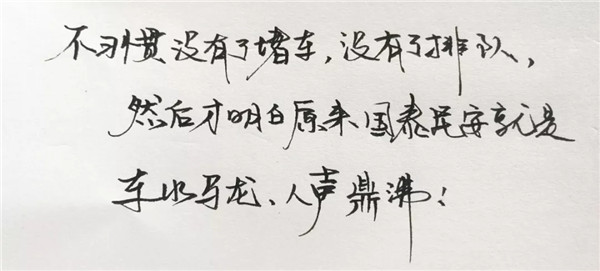 不习惯没有了堵车，没有了排队，
然后才明白原来国泰民安就是
车水马龙、人声鼎沸！